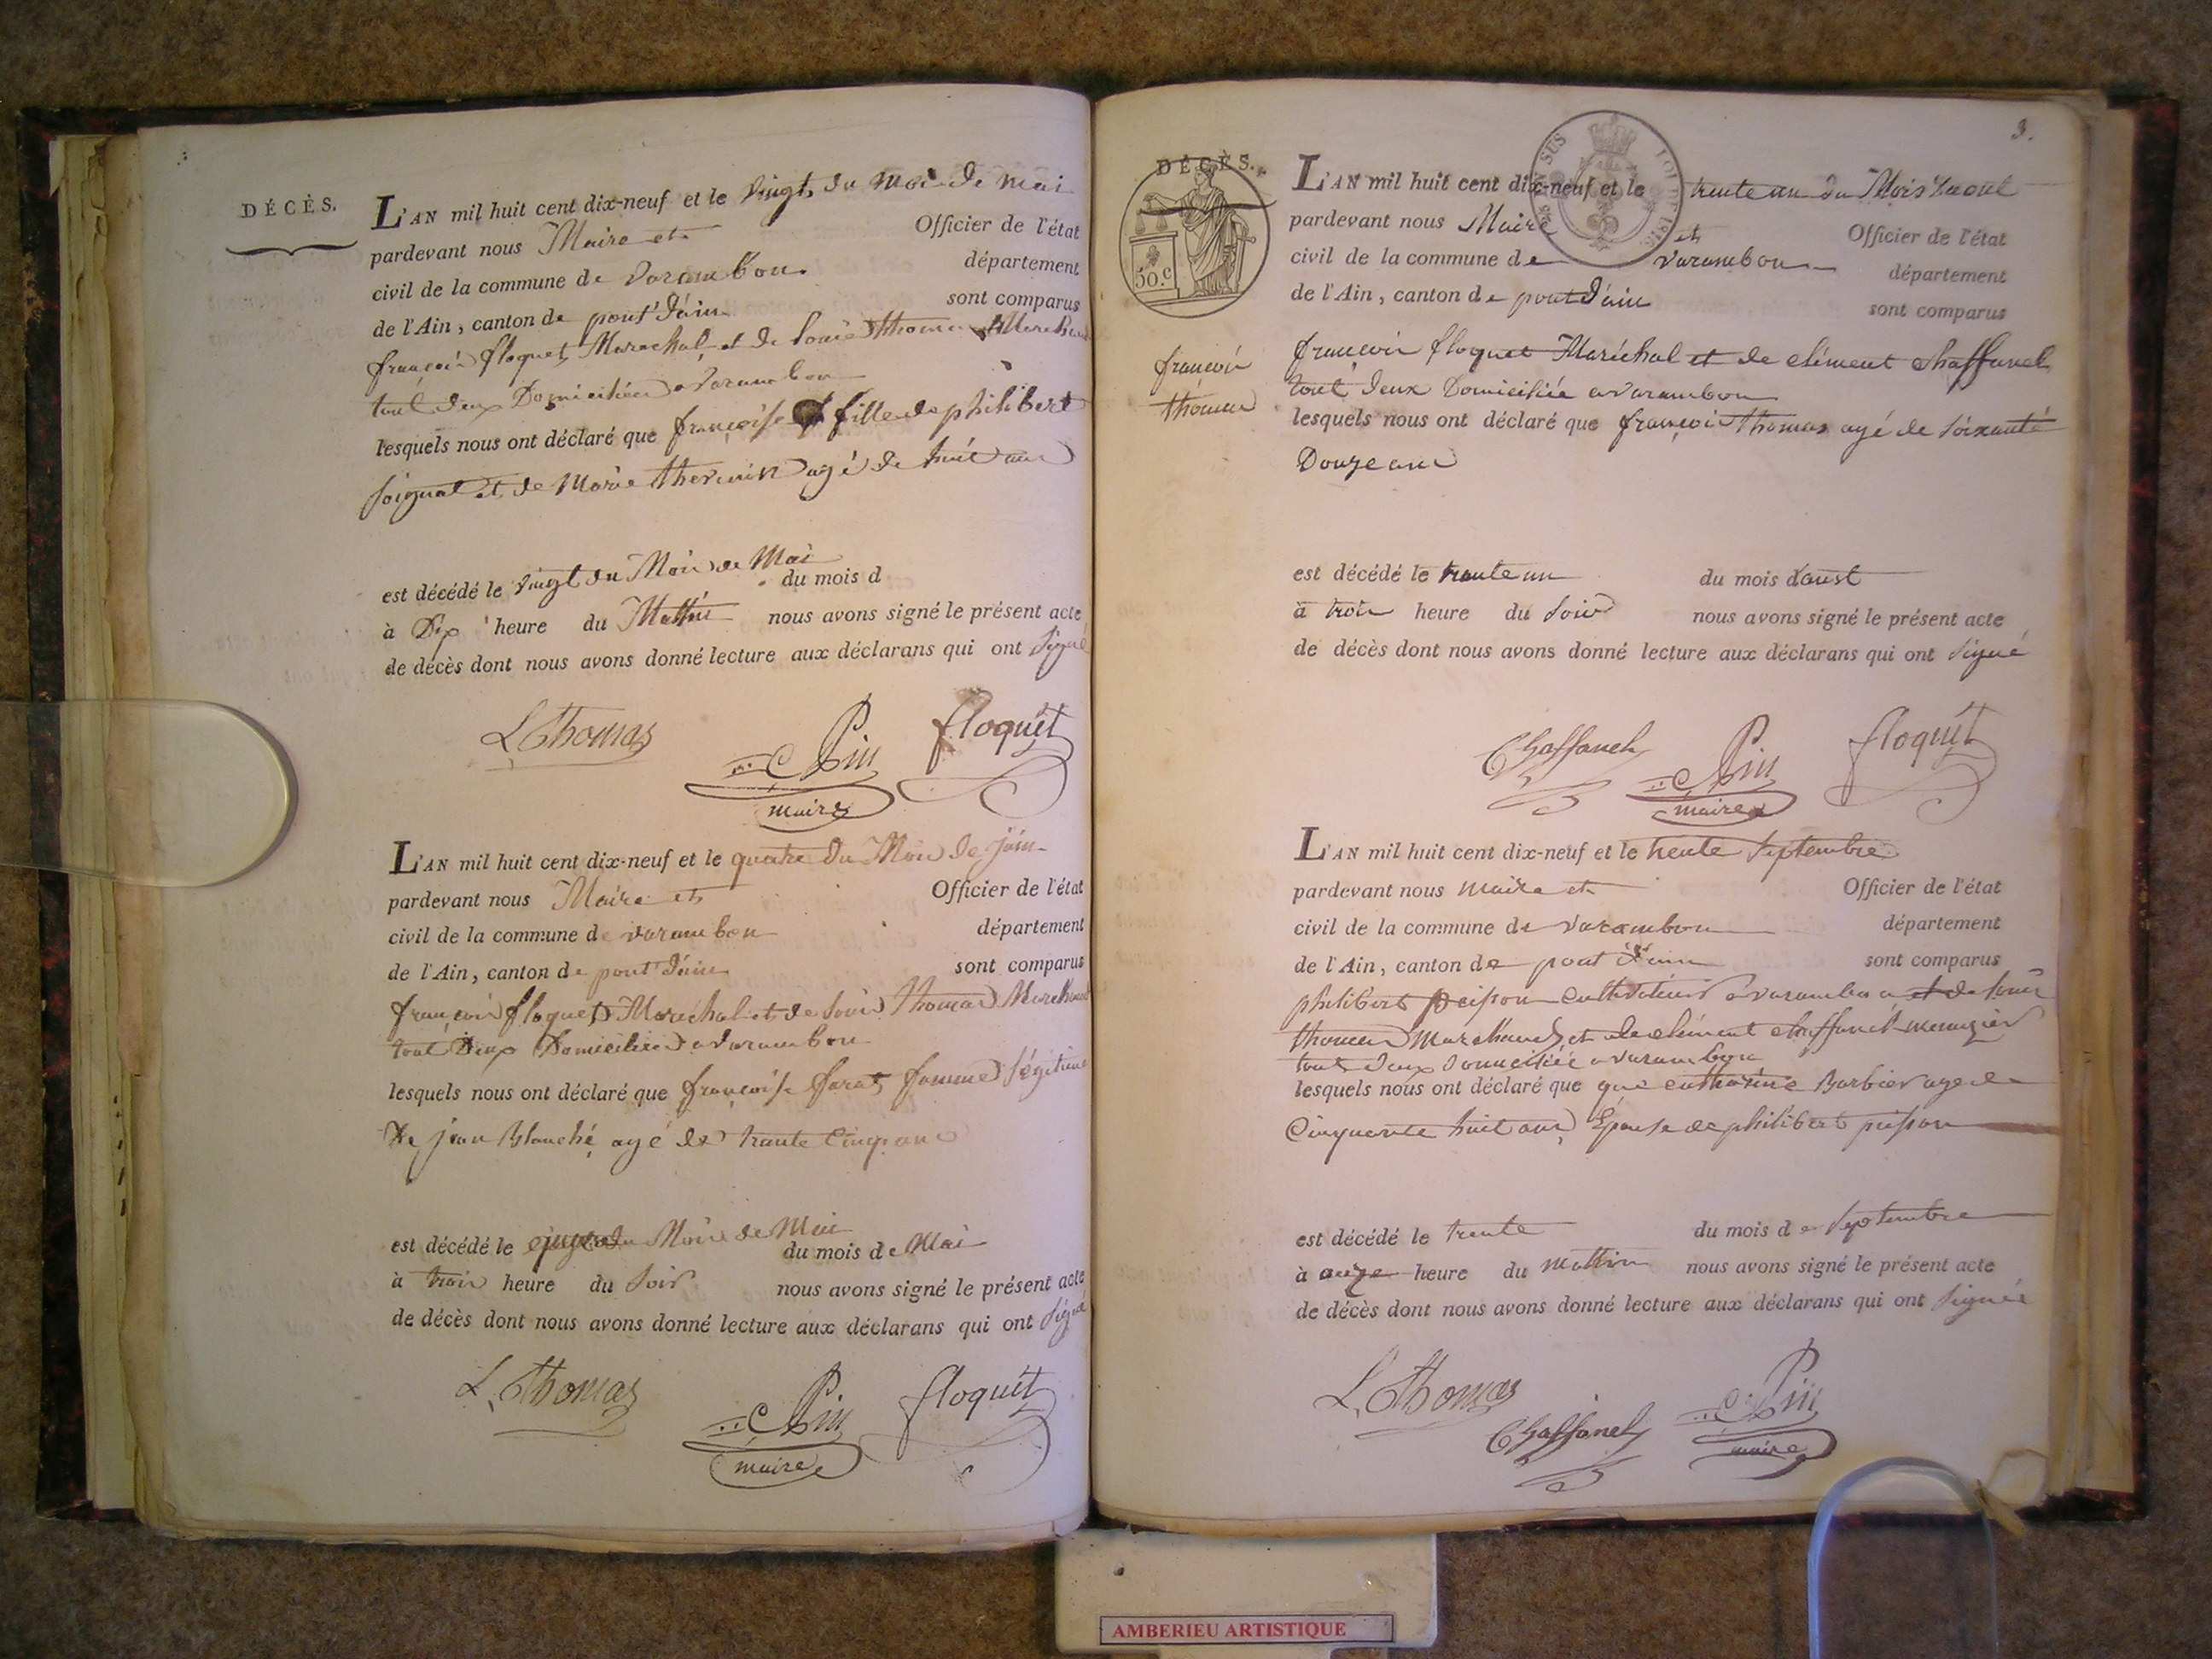 DÉCÈS.
L'AN mil huit cent dix-neuf et le vingt du moi de mai
pardevant nous Maire et Officier de l'état
civil de la commune de varambon. département
de l'Ain, canton de pont d'ain sont comparus
françois floquet Marechal et de Louis thomas
tout deux Domiciliée a varambon
lesquels nous ont déclaré que françoise fille de philibert
soignat et de Marie thevenin agé de huit ans
est décédé le vingt du Mois de Mai du mois d
à Dix heure du Mattin nous avons signé le présent acte
de décès dont nous avons donné lecture aux déclarans qui ont signé
L Thomas Pin floquet
maire
L'AN mil huit cent dix-neuf et le quatre du Mois de juin
pardevant nous Maire et Officier de l'état
civil de la commune de varambon département
de l'Ain, canton de pont d'ain sont comparus
françois floquet Marechal et de Louis Thomas Marchand
tout Deux Domiciliée a varambon
lesquels nous ont déclaré que françoise farat famme légitime
De jean Blanché agé de trante Cinq ans
est décédé le du Mois de Mai du mois de Mai
à trois heure du soir nous avons signé le présent acte
de décès dont nous avons donné lecture aux déclarans qui ont signé
L. Thomas Pin floquet
maire
3.
DÉCÈS.
50.c
françois
thomas
L'AN mil huit cent dix-neuf et le trente un du Mois d'aout
pardevant nous Maire et Officier de l'état
civil de la commune de varambon département
de l'Ain, canton de pont d'ain sont comparus
francois floquet Maréchal et de clément chaffanel
tout deux Domiciliée a varambon
lesquels nous ont déclaré que françois thomas agé de soixante
Douze ans
est décédé le trante un du mois d'aust
à trois heure du soir nous avons signé le présent acte
de décès dont nous avons donné lecture aux déclarans qui ont signé
Chaffanel Pin floquet
maire
L'AN mil huit cent dix-neuf et le trente septembre
pardevant nous maire et Officier de l'état
civil de la commune de varambon département
de l'Ain, canton de pont d'ain sont comparus
philibert cultivateur a varambon et de Louis
thomas Marchand et de clément chaffanel menuzier
tout deux domiciliée a varambon
lesquels nous ont déclaré que que cathérine Barbier age de
Cinquante huit ans Epouse de philibert
est décédé le trente du mois de septembre
à onze heure du mattin nous avons signé le présent acte
de décès dont nous avons donné lecture aux déclarans qui ont signés
L. Thomas Chaffanel Pin
maire
AMBERIEU ARTISTIQUE